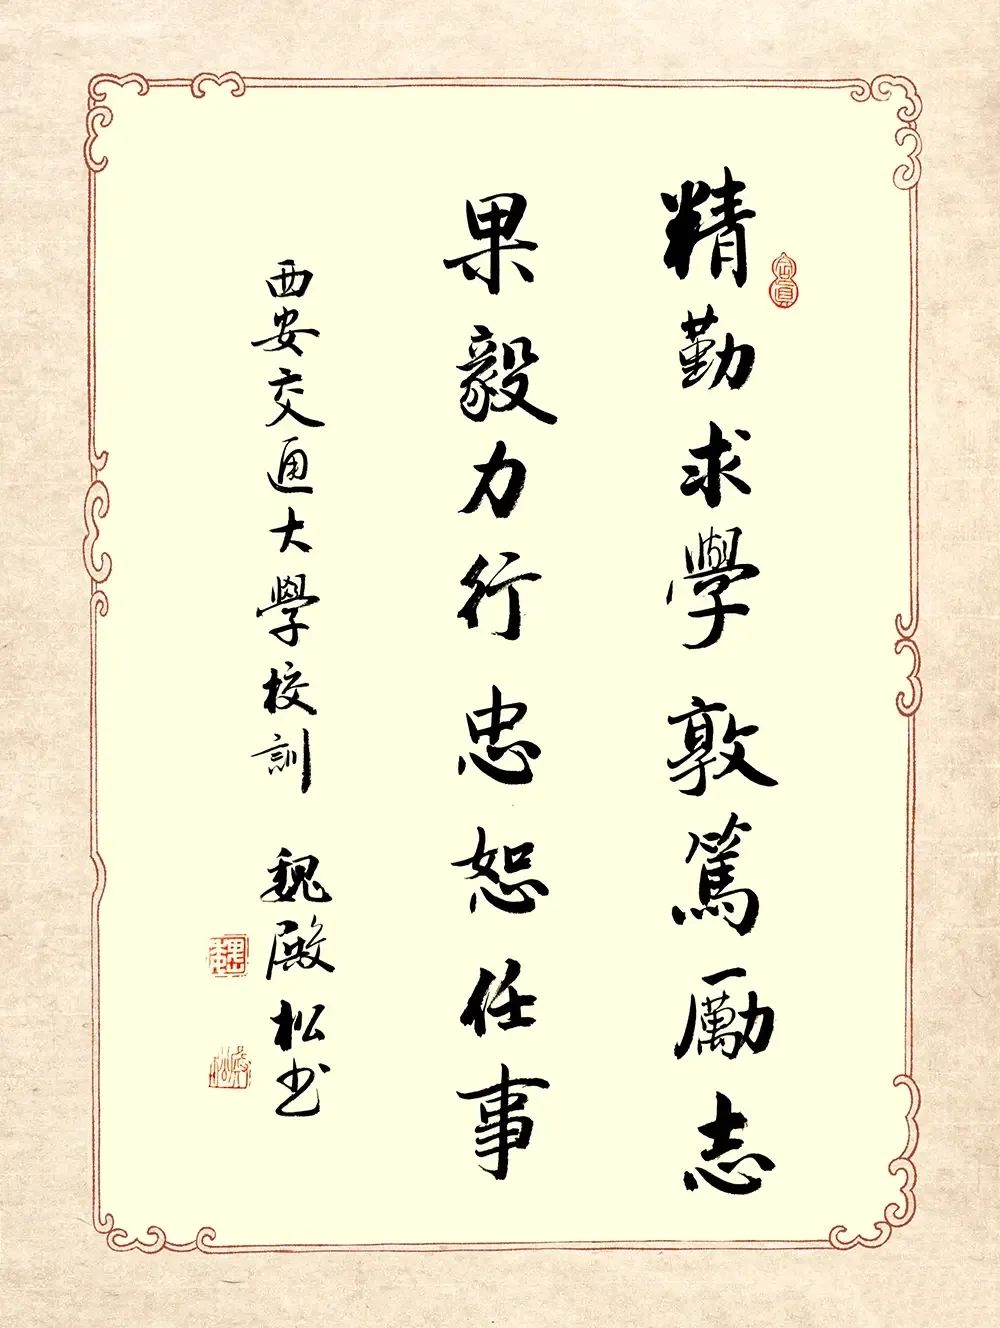 精勤求學敦篤勵志
果毅力行忠恕任事
西安交通大學校訓 魏殿松书